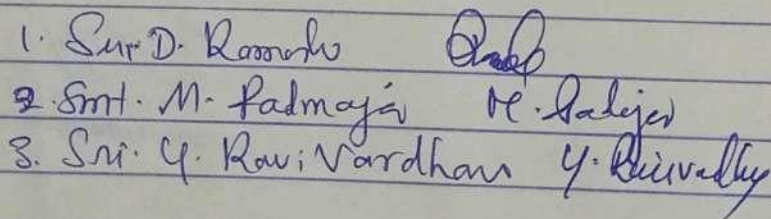 1. Sri D. Ramesh
2. Smt. M. Padmaja M. Padmaja
3. Sri. Y. Ravi Vardhan Y. Ravivardhan